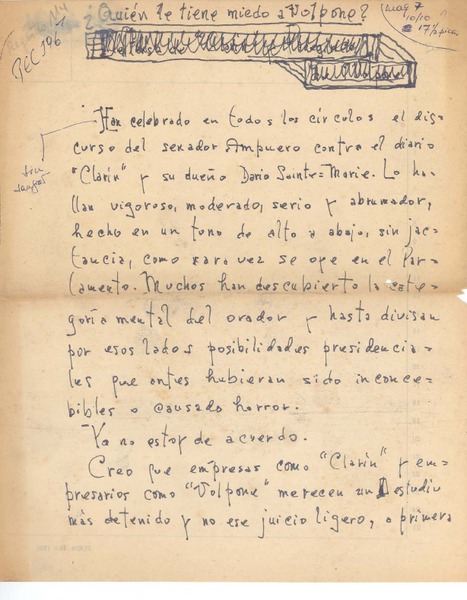 ¿Quién le tiene miedo a Volpone?
REC 106
10/10
Han celebrado en todos los círculos el dis=
curso del senador Ampuero contra el diario
"Clarín" y su dueño Dario Sainte=Marie. Lo ha=
llan vigoroso, moderado, serio y abrumador,
hecho en un tono de alto a abajo, sin jac=
tancia, como rara vez se oye en el Par=
lamento. Muchos han descubierto la cate=
goría mental del orador y hasta divisan
por esos lados posibilidades presidencia=
les que antes hubieran sido inconce=
bibles o causado horror.
Yo no estoy de acuerdo.
Creo que empresas como "Clarín" y em=
presarios como "Volpone" merecen un estudio
más detenido y no ese juicio ligero, a primera